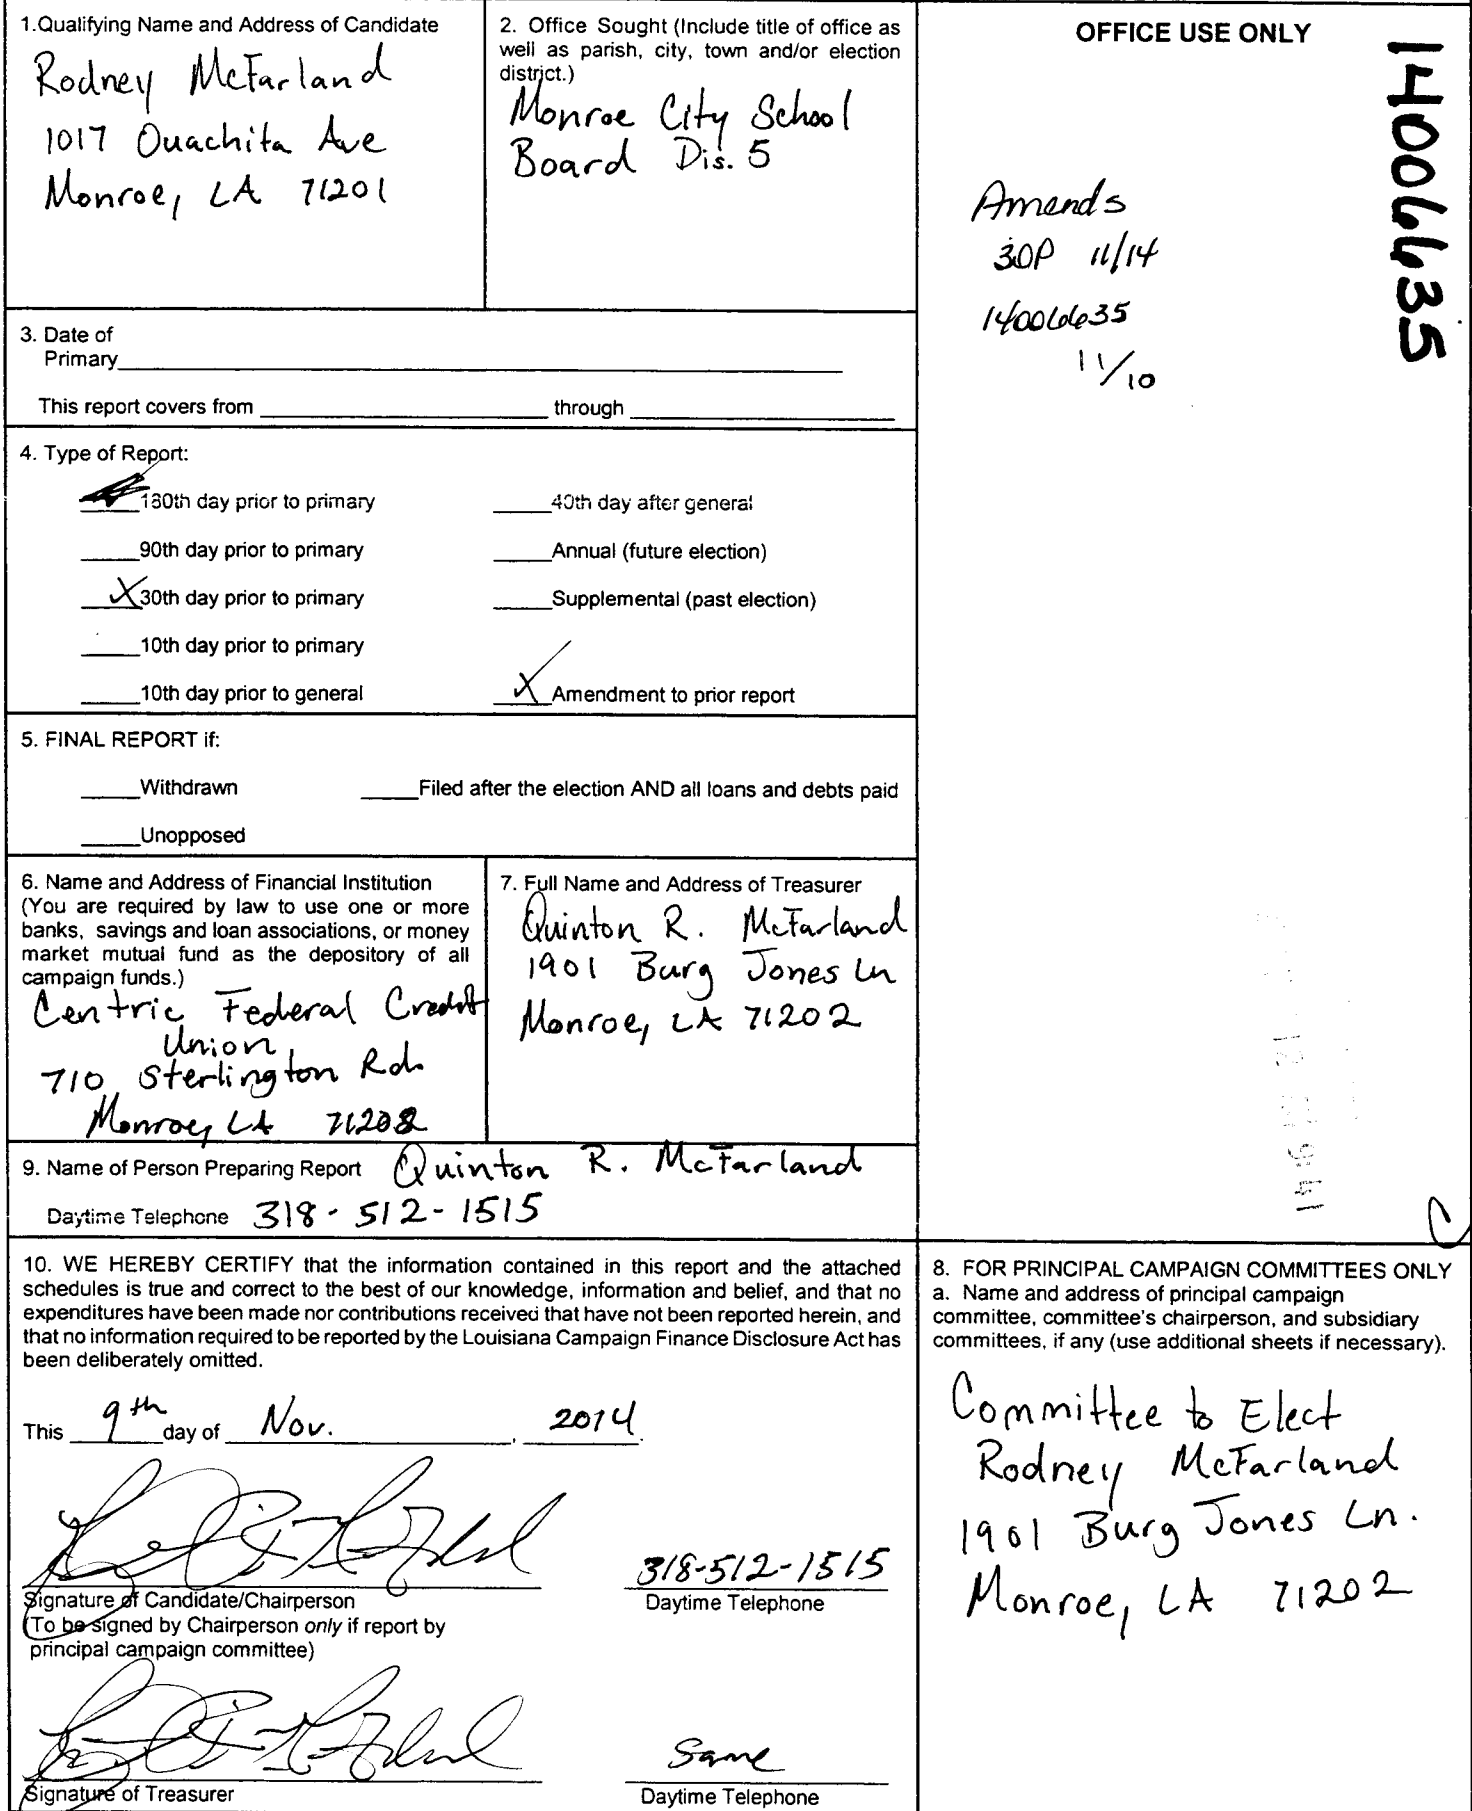 1.Qualifying Name and Address of Candidate
Rodney McFarland
1017 Ouachita Ave
Monroe, LA 71201
2. Office Sought (Include title of office as
well as parish, city, town and/or election
district.)
Monroe City School
Board Dis. 5
OFFICE USE ONLY
14006635
Amends
30P 11/14
14006635
11/10
3. Date of
Primary
This report covers from through
4. Type of Report:
180th day prior to primary
40th day after general
90th day prior to primary
Annual (future election)
X 30th day prior to primary
Supplemental (past election)
10th day prior to primary
10th day prior to general
X Amendment to prior report
5. FINAL REPORT if:
Withdrawn
Filed after the election AND all loans and debts paid
Unopposed
6. Name and Address of Financial Institution
(You are required by law to use one or more
banks, savings and loan associations, or money
market mutual fund as the depository of all
campaign funds.)
Centric Federal Credit
Union
710 Sterlington Rd.
Monroe, LA
7. Full Name and Address of Treasurer
Quinton R. McFarland
1901 Burg Jones Ln
Monroe, LA 71202
9. Name of Person Preparing Report Quinton R. McFarland
Daytime Telephone 318-512-1515
10. WE HEREBY CERTIFY that the information contained in this report and the attached
schedules is true and correct to the best of our knowledge, information and belief, and that no
expenditures have been made nor contributions received that have not been reported herein, and
that no information required to be reported by the Louisiana Campaign Finance Disclosure Act has
been deliberately omitted.
This 9th day of Nov. , 2014.
318-512-1515
Signature of Candidate/Chairperson
Daytime Telephone
(To be signed by Chairperson only if report by
principal campaign committee)
Same
Signature of Treasurer
Daytime Telephone
8. FOR PRINCIPAL CAMPAIGN COMMITTEES ONLY
a. Name and address of principal campaign
committee, committee's chairperson, and subsidiary
committees, if any (use additional sheets if necessary).
Committee to Elect
Rodney McFarland
1901 Burg Jones Ln.
Monroe, LA 71202